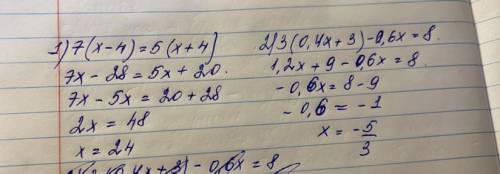 1) 7(x-4)=5(x+4)
7x-28=5x+20.
7x-5x=20+28
2x=48
x=24
2) 3(0,4x+3)-0,6x=8.
1,2x+9-0,6x=8.
-0,6x=8-9
-0,6=-1
x=-5/3
(0,4x+3)-0,6x=8